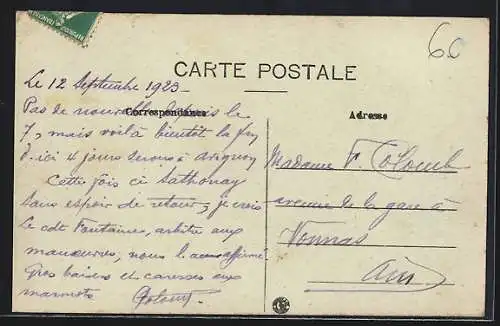 60
CARTE POSTALE
Correspondance
Adresse
Le 12 Septembre 1923
Pas de nouvelle depuis le
7, mais voilà bientôt la fin
d'ici 4 jours serons à avignon
Cette fois ci Sathonay
sans espoir de retour, je crois
Le cdt Fontaines, arbitre aux
manœuvres, nous l'a affirmé
Gros baisers et caresses aux
marmots
Madame F. Colomb
avenue de la gare à
Vonnas
Ain